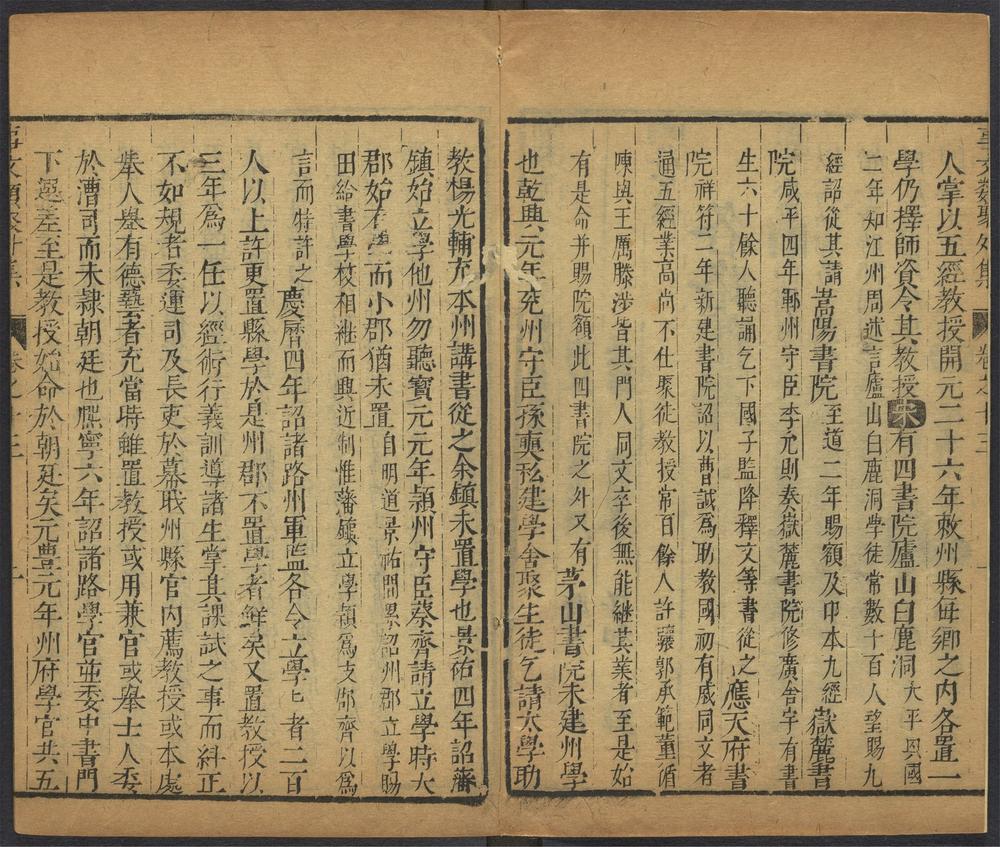 事文類聚外集
卷之十三
人掌以五經教授開元二十六年敕州縣每鄉之內各置一
學仍擇師資令其教授宋有四書院廬山白鹿洞太平興國
二年知江州周述言廬山白鹿洞學徒常數十百人望賜九
經詔從其請嵩陽書院至道二年賜額及印本九經嶽麓書
院咸平四年郸州守臣李允則奏嶽麓書院修廣舍宇有書
生六十餘人聽誦乞下國子監降釋文等書從之應天府書
院祥符二年新建書院詔以曹誠爲助教國初有戚同文者
通五經業高尚不仕聚徒教授常百餘人許驤郭承範董循
陳與王厲滕涉皆其門人同文卒後無能繼其業者至是始
有是命并賜院額此四書院之外又有茅山書院未建州學
也乾興元年兖州守臣孫奭私建學舍聚生徒乞請太學助
教楊光輔充本州講書從之余鎮未置學也景佑四年詔藩
鎮始立學他州勿聽寶元元年潁州守臣蔡齊請立學時大
郡始有學而小郡猶未置自明道景祐間累詔州郡立學賜
田給書學校相繼而興近制惟藩鎮立學潁爲支郡齊以爲
言而特許之慶曆四年詔諸路州軍監各令立學匕者二百
人以上許更置縣學於是州郡不置學者鮮矣又置教授以
三年爲一任以經術行義訓導諸生掌其課試之事而糾正
不如規者委運司及長吏於幕職州縣官內薦教授或本處
舉人舉有德藝者充當時雖置教授或用兼官或舉士人委
於漕司而未隸朝廷也熙寧六年詔諸路學官並委中書門
下選差至是教授始命於朝廷矣元豊元年州府學官共五
事文類聚外集
卷之十三